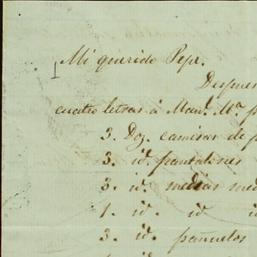 Mi querido Pepe.
Despues
cuatro letras á Man.l M.a
3. Doz. camisas de
3. id. pantalones
3. id. medias
1. id. id
3. id. pañuelos